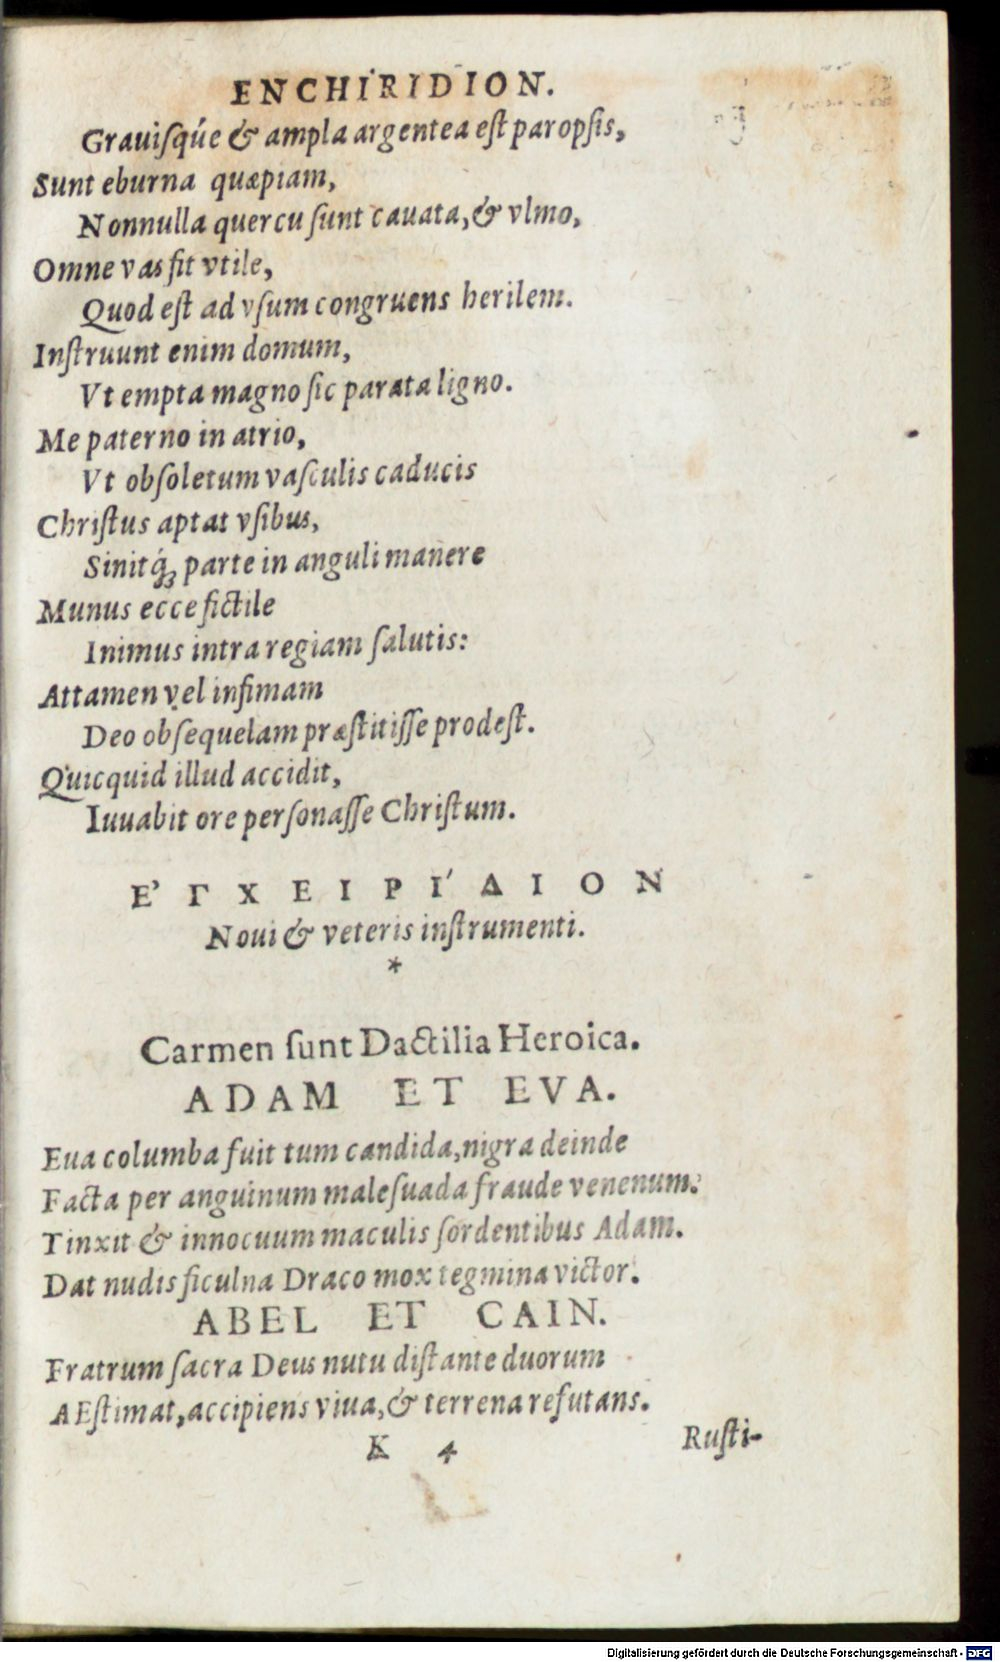 ENCHIRIDION.
Grauiſq́ue & ampla argentea eſt paropſis,
Sunt eburna quæpiam,
Nonnulla quercu ſunt cauata, & vlmo,
Omne vas fit vtile,
Quod eſt ad vſum congruens herilem.
Inſtruunt enim domum,
Vt empta magno ſic parata ligno.
Me paterno in atrio,
Vt obſoletum vaſculis caducis
Chriſtus aptat vſibus,
Sinitq́; parte in anguli manere
Munus ecce fictile
Inimus intra regiam ſalutis:
Attamen vel infimam
Deo obſequelam præſtitiſſe prodeſt.
Quicquid illud accidit,
Iuuabit ore perſonaſſe Chriſtum.
Ε᾿ΓΧΕΙΡΙ´ΔΙΟΝ
Noui & veteris inſtrumenti.
*
Carmen ſunt Dactilia Heroica.
ADAM ET EVA.
Eua columba fuit tum candida, nigra deinde
Facta per anguinum maleſuada fraude venenum:
Tinxit & innocuum maculis ſordentibus Adam.
Dat nudis ficulna Draco mox tegmina victor.
ABEL ET CAIN.
Fratrum ſacra Deus nutu diſtante duorum
AEſtimat, accipiens viua, & terrena refutans.
K 4 Ruſti-
Digitalisierung gefördert durch die Deutsche Forschungsgemeinschaft - DFG